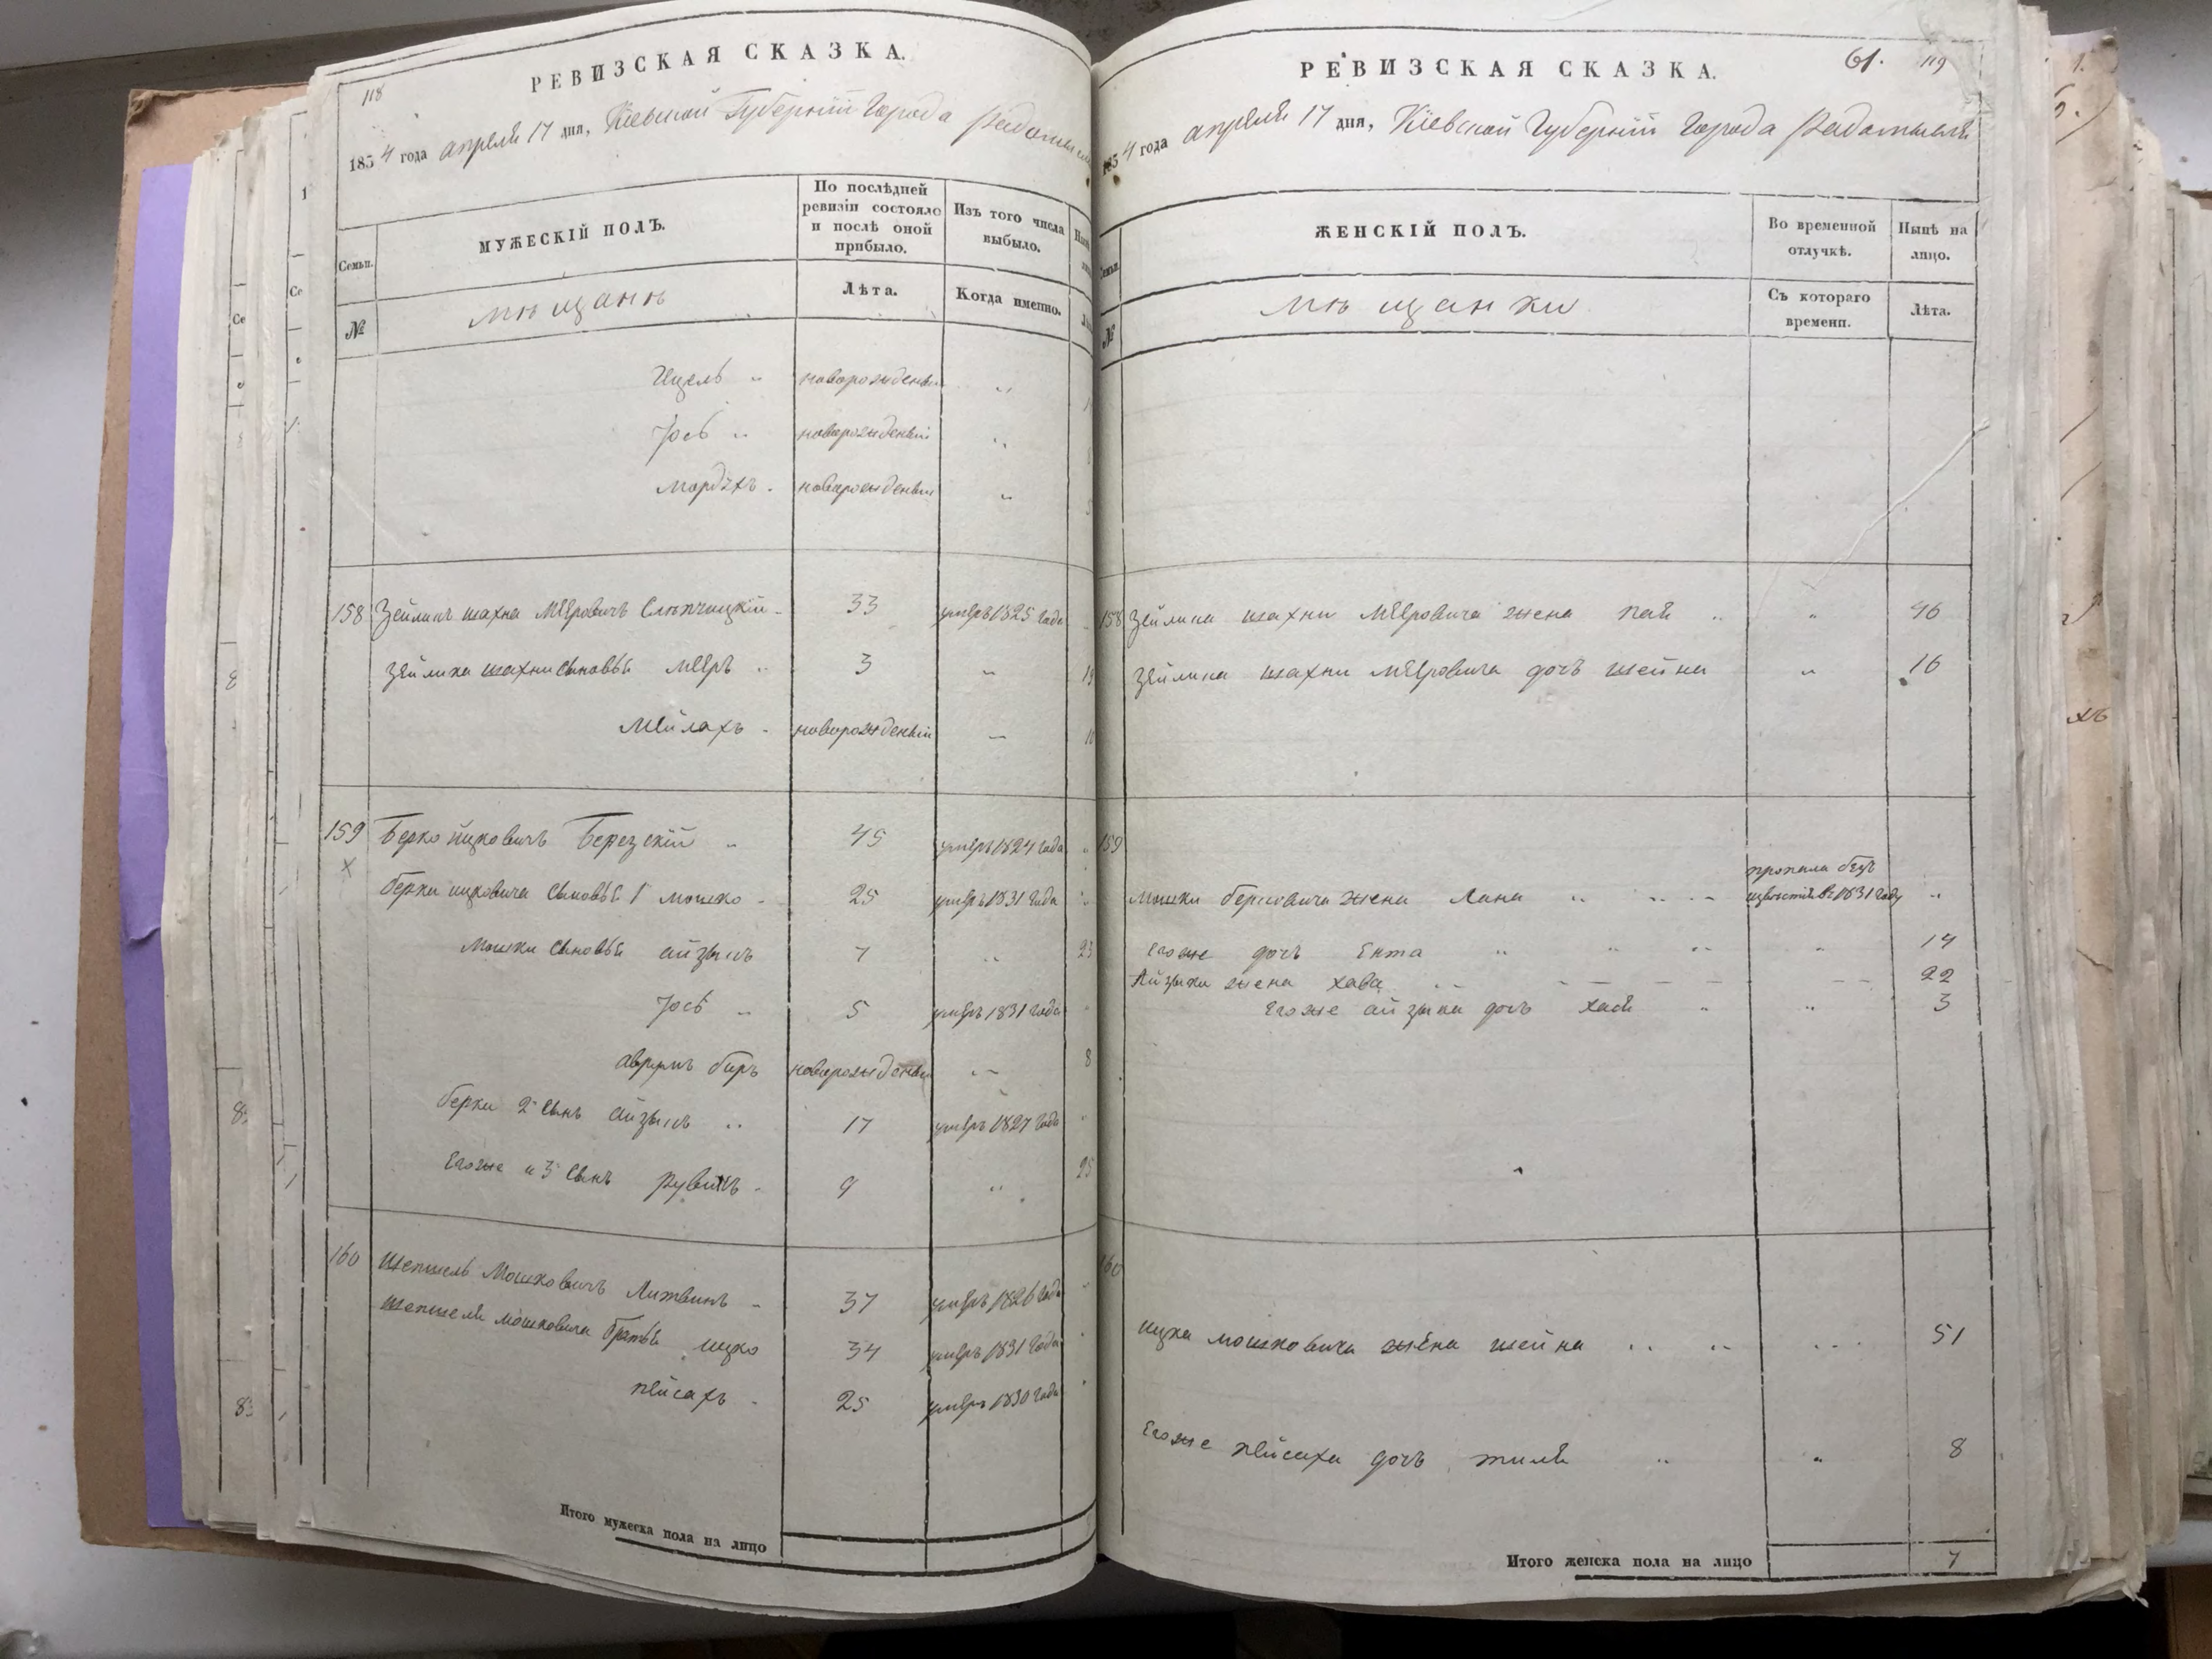 118
РЕВИЗСКАЯ СКАЗКА.
1834 года апреля 17 дня, Кіевской Губерніи Города Радомысля
Семьи.
МУЖЕСКІЙ ПОЛЪ.
По послѣдней ревизіи состояло и послѣ оной прибыло.
Изъ того числа выбыло.
№
мѣщанѣ
Лѣта.
Когда именно.
Ицель " новорожденый "
Іось " новорожденый "
Мордхъ - новорожденый "
158 Зейликъ шахна Мееровичъ Слѣпчицкій - 33 умеръ 1825 Года
Зейлика шахни сыновья Мееръ " 3 " 19
Мейлахъ - новорожденый — 10
159 Берко Ицковичъ Березскій " 45 умеръ 1824 Года "
х
берки ицковича сыновья 1 мошко - 25 умеръ 1831 Года "
Мошки сыновья айзыкъ 7 " 23
Іось " 5 умеръ 1831 Года "
аврумъ беръ новорожденый " 8
берки 2й сынъ айзыкъ " 17 умеръ 1827 Года "
Егоже и 3 сынъ рувинъ - 9 " 25
160 Шепшель Мошковичъ Литвинъ - 37 умеръ 1826 Года "
шепшеля мошковича братья ицко 34 умеръ 1831 Года "
пейсахъ - 25 умеръ 1830 Года "
Итого мужеска пола на лицо
61. 119
РЕВИЗСКАЯ СКАЗКА.
1834 года апреля 17 дня, Кіевской Губерніи Города Радомысля
Семьи.
ЖЕНСКІЙ ПОЛЪ.
Во временной отлучкѣ.
Нынѣ на лицо.
№
мѣщанки
Съ котораго времени.
Лѣта.
158 Зейлика шахни Мееровича жена пая " " 46
Зейлика шахни Мееровича дочь шейна " 16
159
пропала безъ
Мошки берковича жена Лана " " " извѣстія въ 1831 Году "
Егоже дочь Ента " " " " 14
Айзыка жена хава " 22
Егоже айзыка дочь хая " " 3
160
ицка мошковича жена шейна " " " 51
Егоже пейсаха дочь тиля " " 8
Итого женска пола на лицо 7